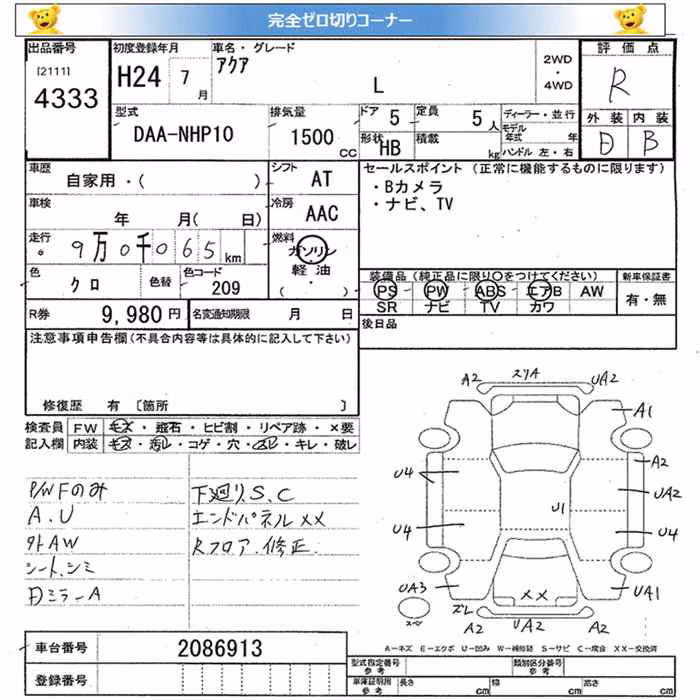 完全ゼロ切りコーナー
出品番号
[2111]
4333
初度登録年月
H24 7 月
車名・グレード
アクア
L
2WD
・
4WD
評価点
R
外装 内装
D B
型式
DAA-NHP10
排気量
1500 CC
ドア 5
定員 5 人
形状 HB
積載 kg
ディーラー・並行
モデル年式 年
ハンドル 左・右
車歴
自家用・( )
シフト
AT
車検
年 月( 日)
冷房
AAC
走行
9万0千065 km
燃料
ガソリン
・
軽油
( )
色
クロ
色替
色コード
209
R券 9,980 円
名変通知期限 月 日
セールスポイント (正常に機能するものに限ります)
・Bカメラ
・ナビ、TV
装備品 (純正品に限り○をつけてください)
PS PW ABS エアB AW
SR ナビ TV カワ
新車保証書
有・無
後日品
注意事項申告欄(不具合内容等は具体的に記入して下さい)
修復歴 有 〔箇所 〕
検査員記入欄
FW キズ・飛石・ヒビ割・リペア跡・×要
内装 キズ・汚レ・コゲ・穴・スレ・キレ・破レ
P/W Fのみ
A.U
外AW
シート.シミ
下廻り S.C
エンドパネル XX
Rフロア.修正.
A2 スリA UA2
A1
A2
UA2
U4
U4
U1
U4
UA3
UA1
XX
ズレ
A2 UA2 A2
A-キズ E-エクボ U-凹み W-補修跡 S-サビ C-腐食 XX-交換済
車台番号 2086913
登録番号
型式指定番号 参考
類別区分番号 参考
車庫証明用 参考
長さ cm
幅 cm
高さ cm